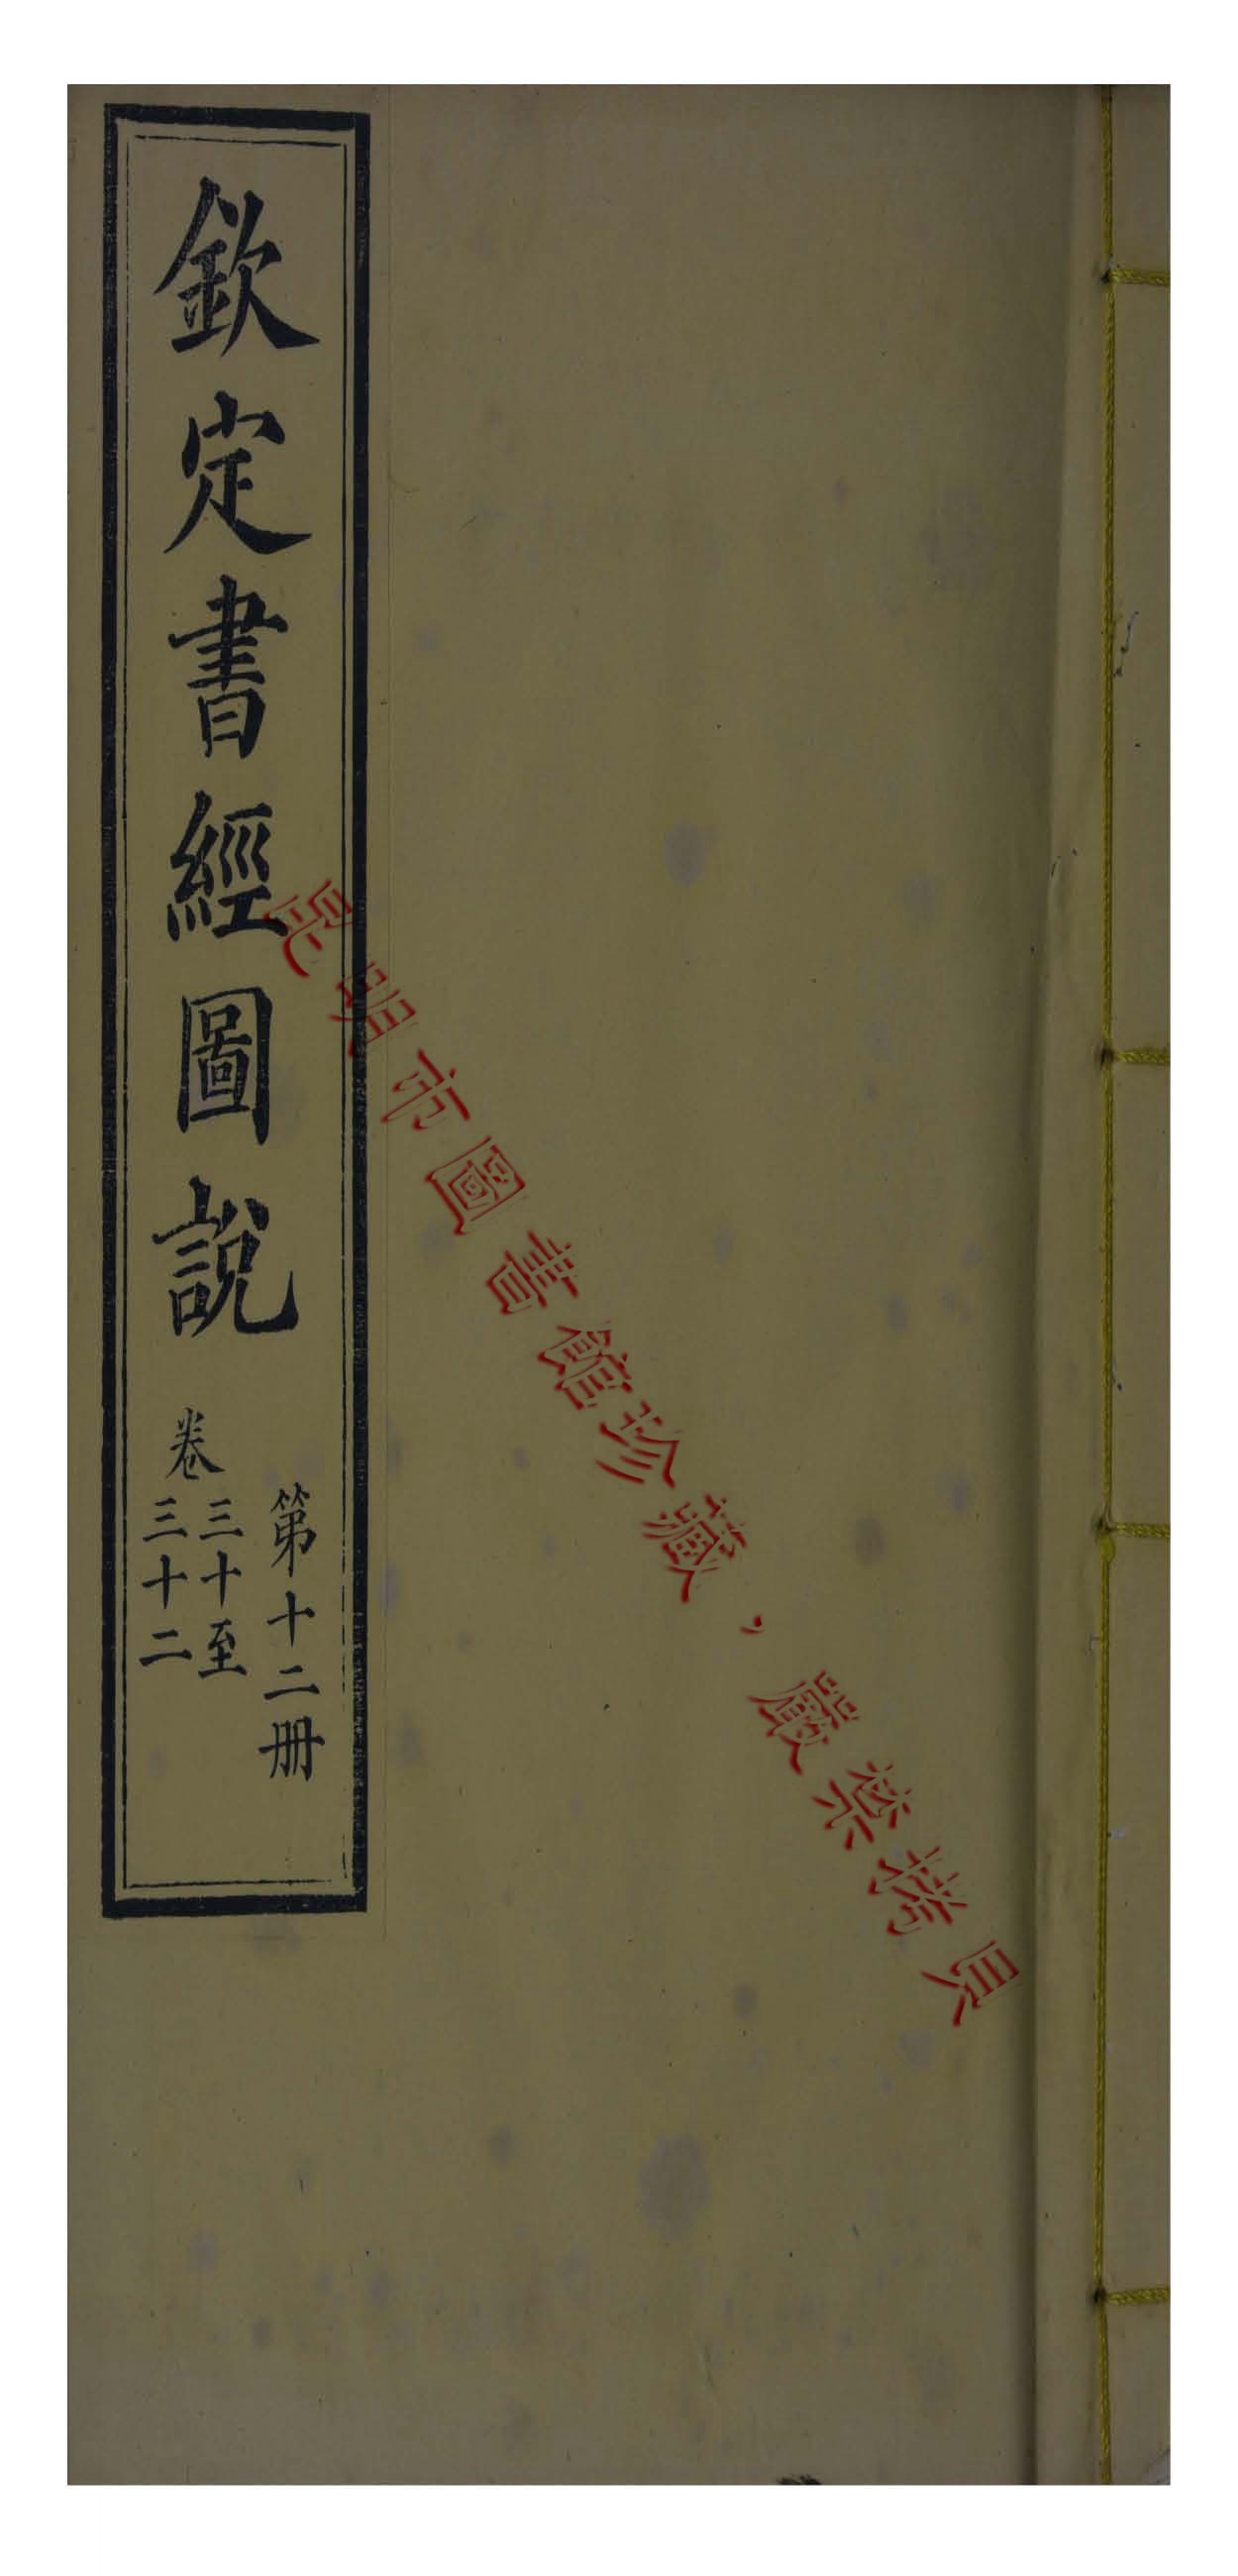 欽定書經圖說
第十二册
卷三十至
三十二
昆明市圖書館珍藏，嚴禁拷貝